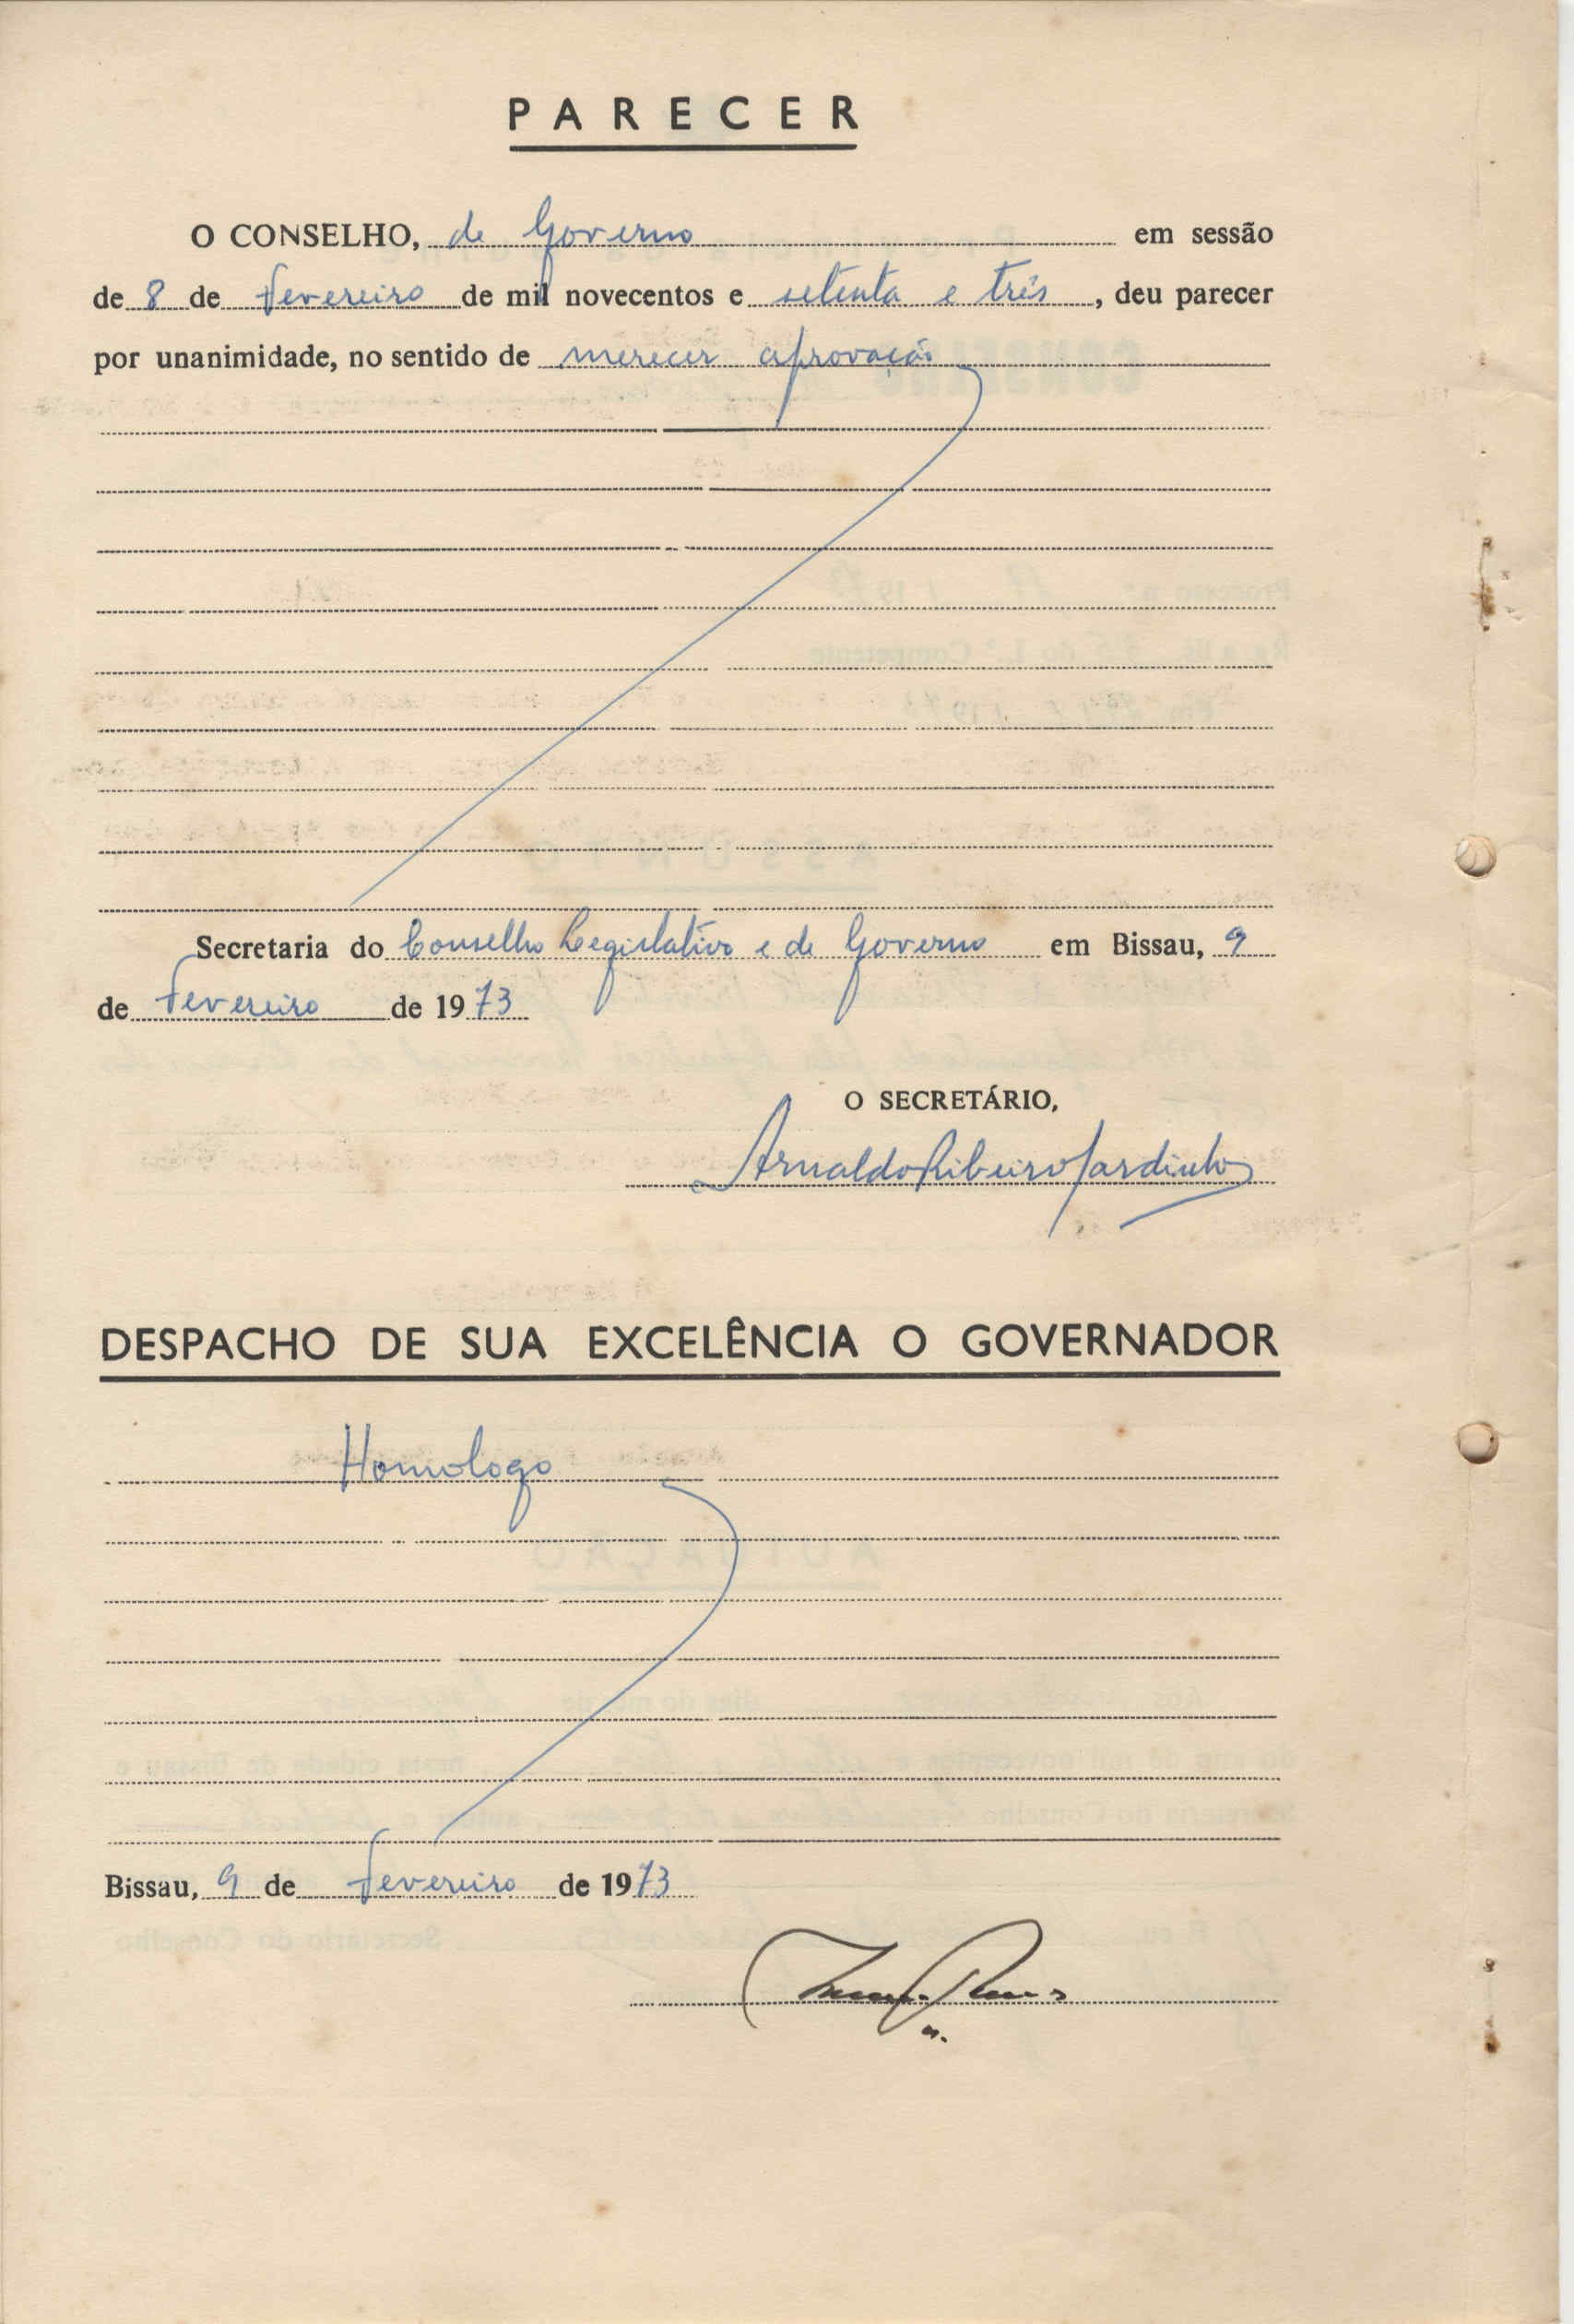 PARECER
O CONSELHO, de Governo em sessão
de 8 de fevereiro de mil novecentos e setenta e três, deu parecer
por unanimidade, no sentido de merecer aprovação
Secretaria do Conselho Legislativo e de Governo em Bissau, 9
de fevereiro de 1973
O SECRETÁRIO,
Arnaldo Ribeiro Sardinha
DESPACHO DE SUA EXCELÊNCIA O GOVERNADOR
Homologo
Bissau, 9 de fevereiro de 1973